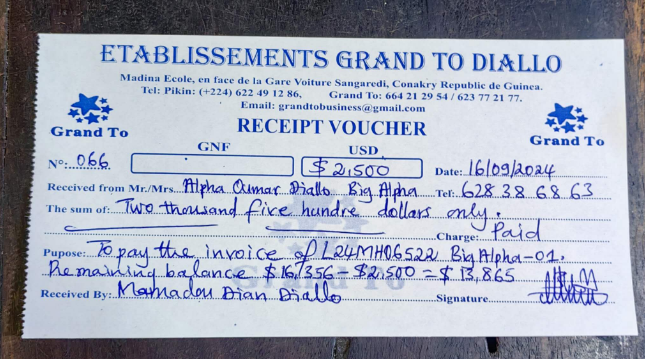 ETABLISSEMENTS GRAND TO DIALLO
Madina Ecole, en face de la Gare Voiture Sangaredi, Conakry Republic de Guinea.
Tel: Pikin: (+224) 622 49 12 86, Grand To: 664 21 29 54 / 623 77 21 77.
Email: grandtobusiness@gmail.com
Grand To
RECEIPT VOUCHER
Grand To
GNF USD
N°: 066 $2,500 Date: 16/09/2024
Received from Mr./Mrs. Alpha Oumar Diallo Big Alpha Tel: 628 38 68 63
The sum of: Two thousand five hundre dollars only.
Charge: Paid
Pupose: To pay the invoice of L24MH06522 Big Alpha-01.
Remaining balance $16,356 - $2,500 = $13,865
Received By: Mamadou Dian Diallo Signature
Grand To